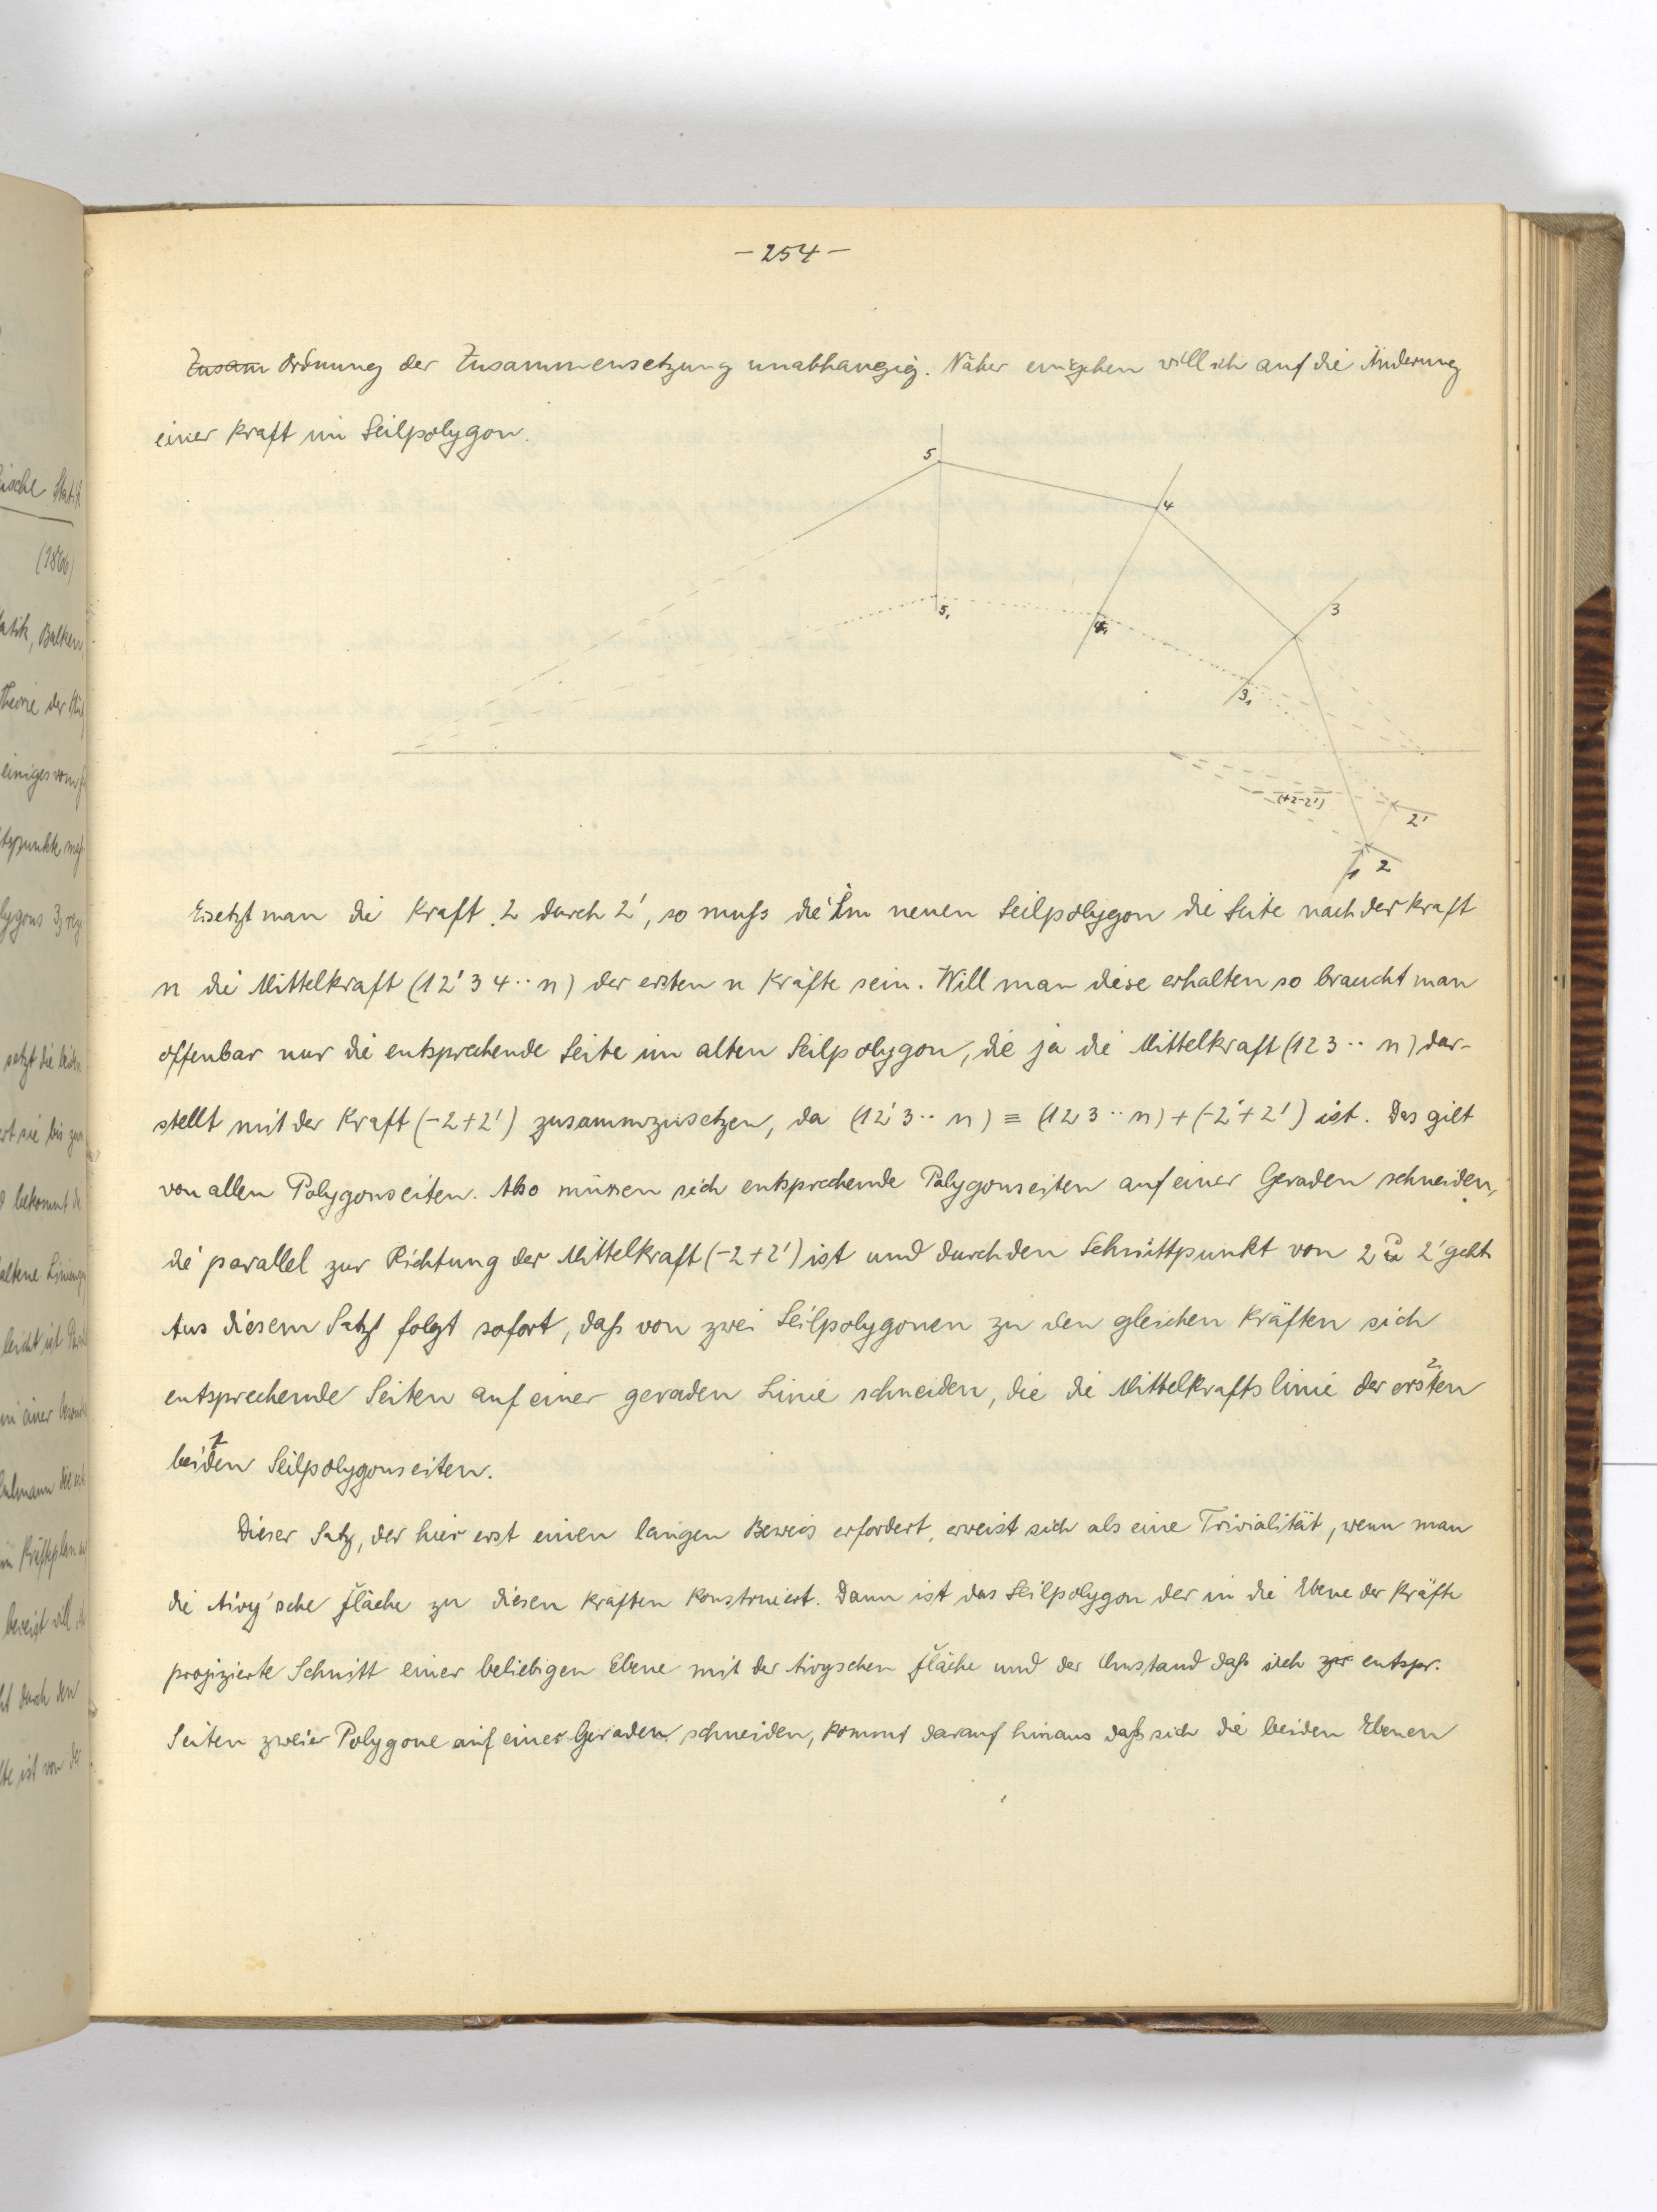 -254-
Zusam Ordnung der Zusammensetzung unabhangig. Näher eingehen will ich auf die Änderung
einer Kraft im Seilpolygon.
5
4
3
5₁
4₁
3₁
(+2-2')
2'
1 2
Ersetzt man die Kraft 2 durch 2', so muß die Im neuen Seilpolygon die Seite nach der Kraft
n die Mittelkraft (12'34··n) der ersten n Kräfte sein. Will man diese erhalten so braucht man
offenbar nur die entsprechende Seite im alten Seilpolygon, die ja die Mittelkraft (123··n) dar-
stellt mit der Kraft (-2+2') zusammzusetzen, da (12'3··n) ≡ (123··n)+(-2+2') ist. Das gilt
von allen Polygonseiten. Also müssen sich entsprechende Polygonseiten auf einer Geraden schneiden,
die parallel zur Richtung der Mittelkraft (-2+2') ist und durch den Schnittpunkt von 2 u 2' geht.
Aus diesem Satz folgt sofort, daß von zwei Seilpolygonen zu den gleichen Kräften sich
entsprechende Seiten auf einer geraden Linie schneiden, die die Mittelkraftslinie der ersten 2
beiden 1 Seilpolygonseiten.
Dieser Satz, der hier erst einen langen Beweis erfordert, erweist sich als eine Trivialität, wenn man
die Airy'sche Fläche zu diesen Kräften konstruiert. Dann ist das Seilpolygon der in die Ebene der Kräfte
projizierte Schnitt einer beliebigen Ebene mit der Airyschen Fläche und der Umstand daß sich entspr.
Seiten zweier Polygone auf einer Geraden schneiden, kommt darauf hinaus daß sich die beiden Ebenen
ische Stat
(1866)
atik, Balken,
Theorie der
einiges vom
lygons
setzt die beiden
ert sie bis zum
bekommt
leicht ist
in einer
Culmann
bereigt will
ht durch den
lte ist von der